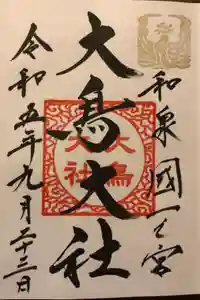 和泉國一之宮
大鳥大社
大鳥
大社
令和五年九月二十三日